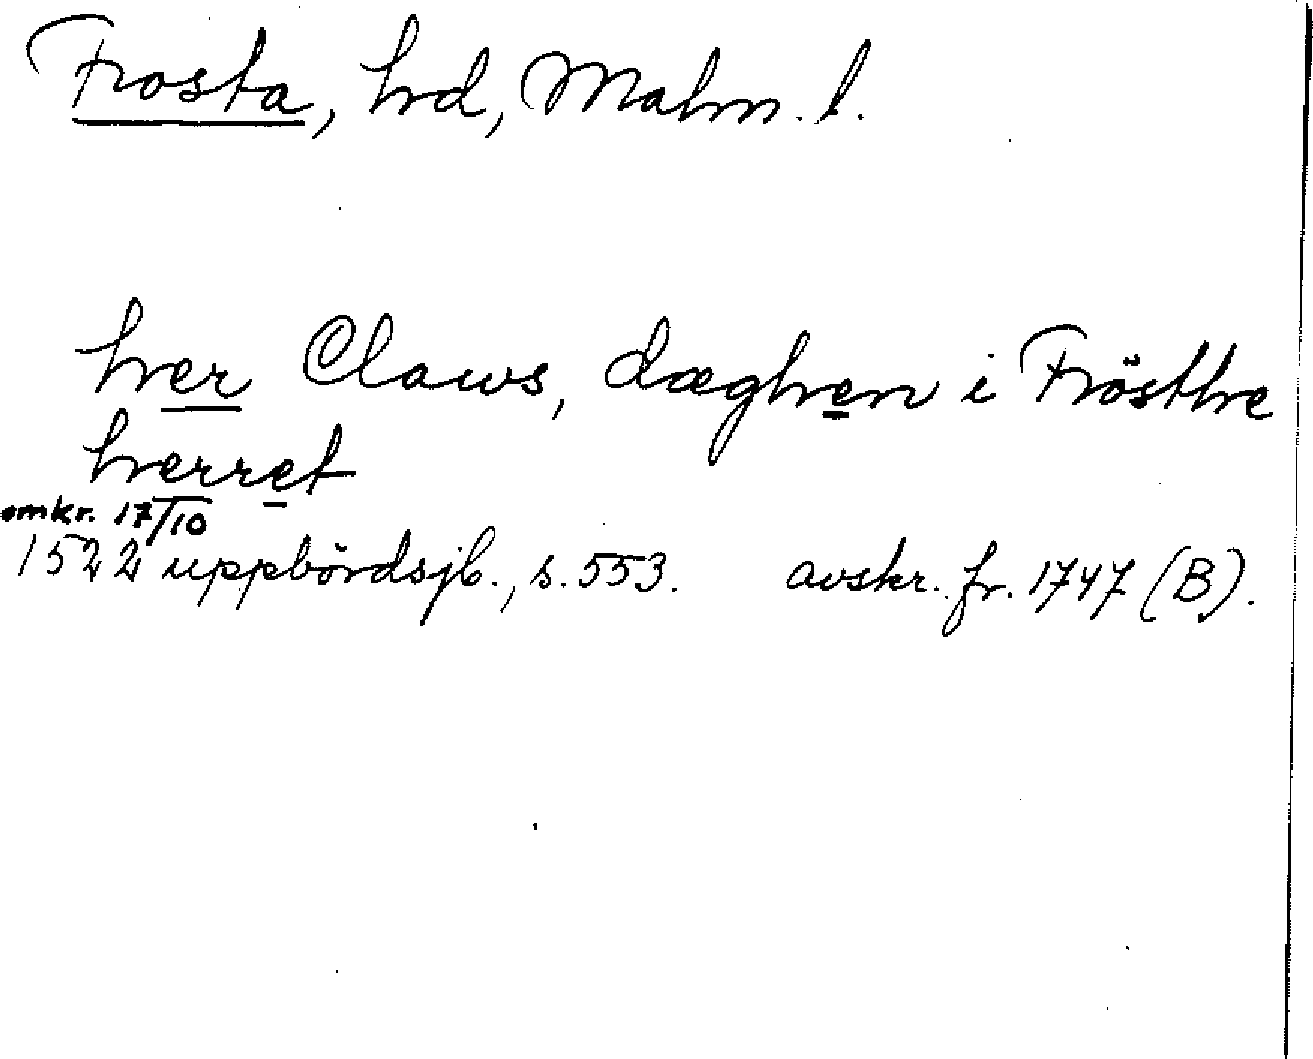 Frosta, hd, Malm. l.
her Claws, dæghen i Frösthe
herret
omkr. 17/10
1522 uppbördsjb., s. 553. avskr. fr. 1747 (B).